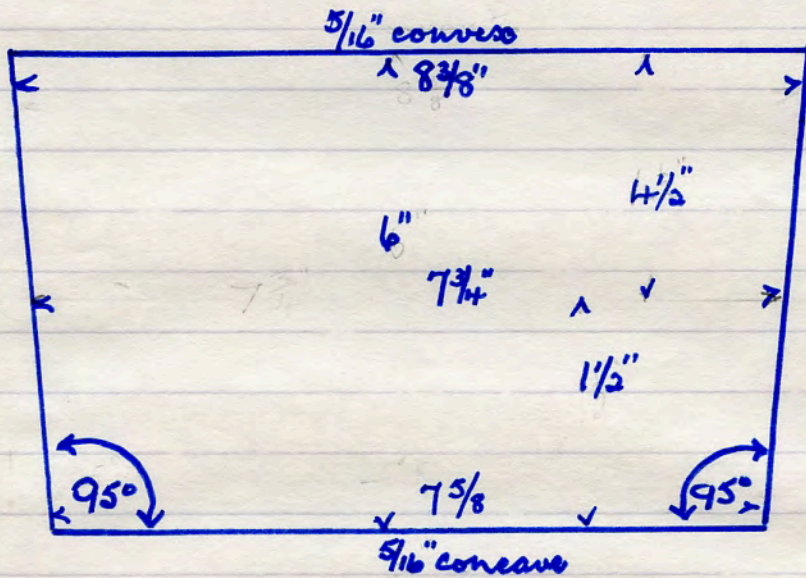 5/16" convex
8 3/8"
4 1/2"
6"
7 3/4"
1 1/2"
95°
7 5/8
95°
5/16" concave